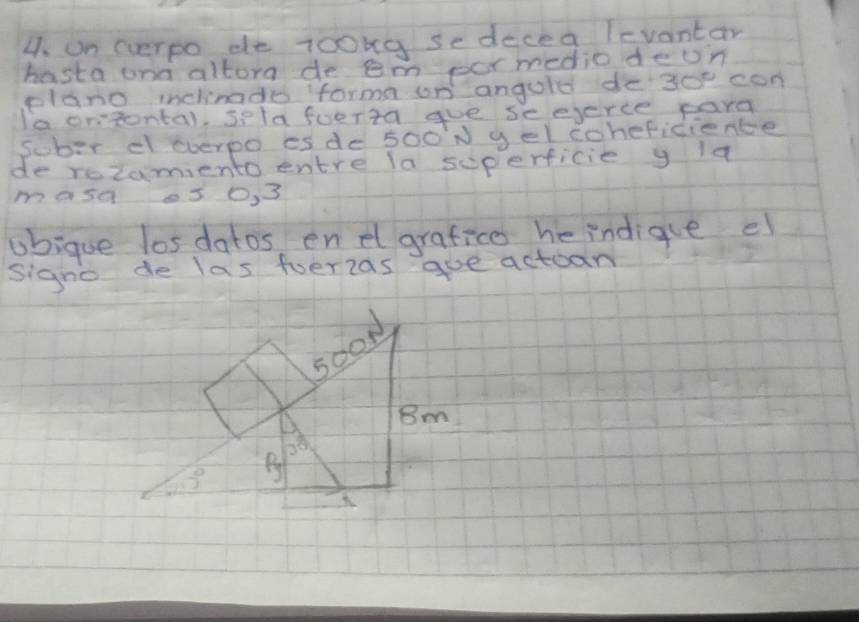 4. Un cuerpo de 100kg se decea levantar
hasta una altura de 8m por medio de un
plano inclinado forma un angulo de 30° con
la orizontal. si la fuerza que se ejerce para
subir el cuerpo es de 500N y el coheficiente
de rozamiento entre la superficie y la
masa es 0,3
ubique los datos en el grafico he indique el
signo de las fuerzas que actuan
500N
8m